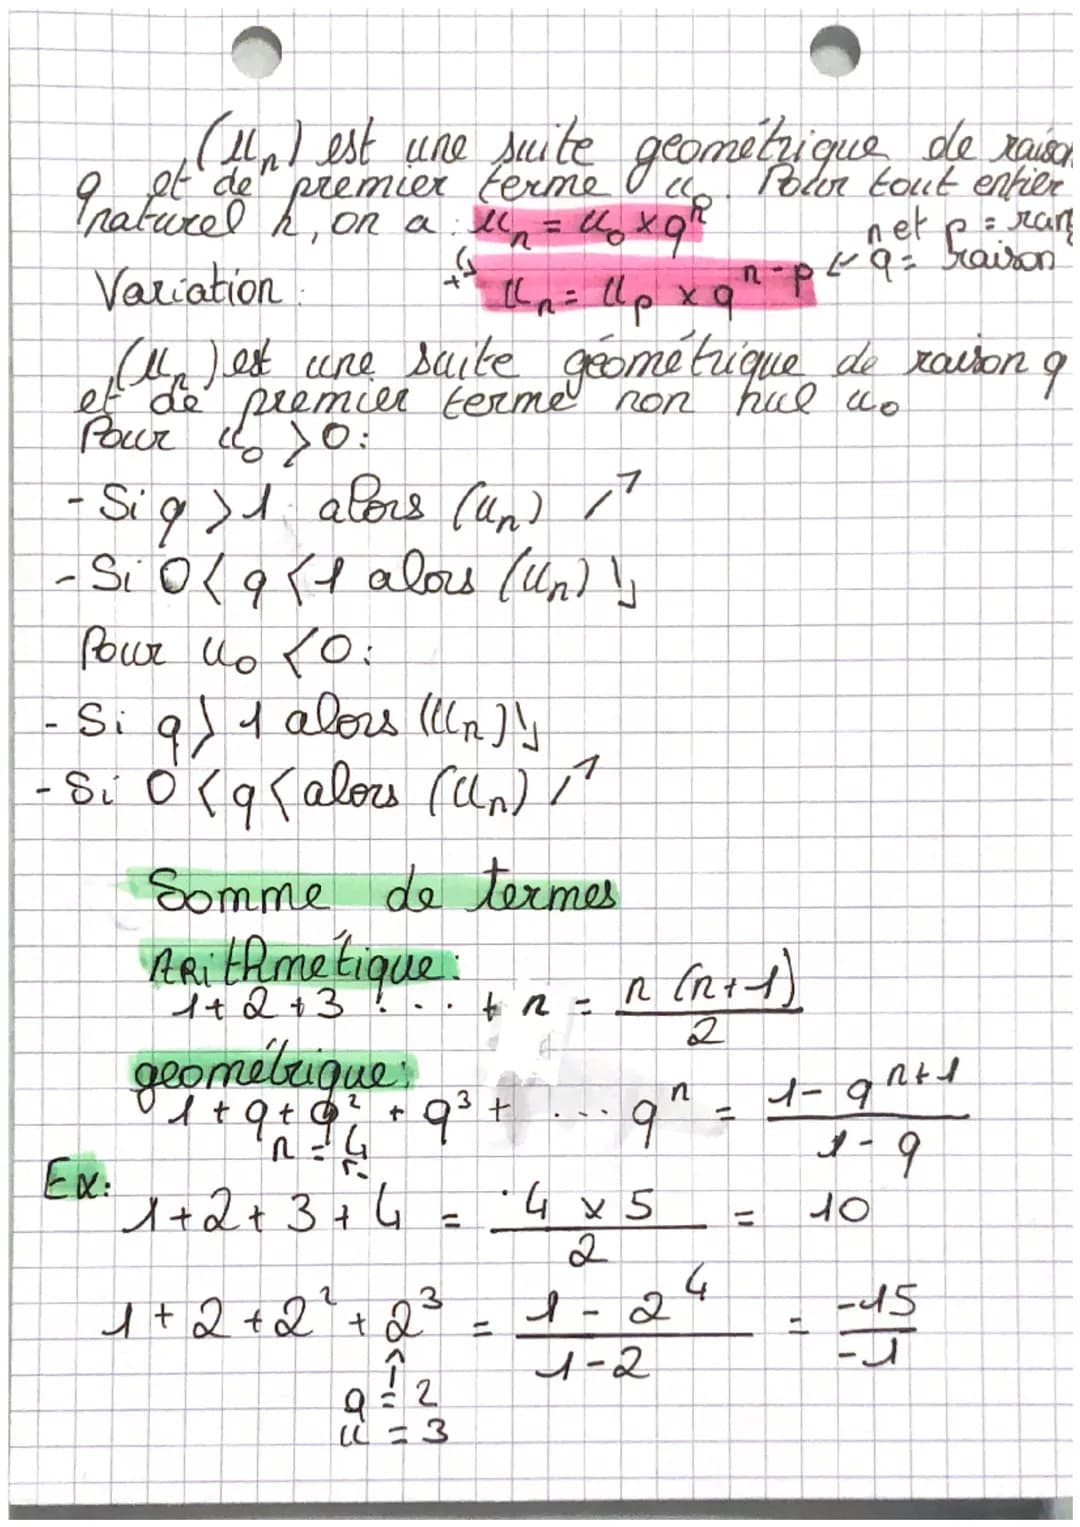 (uₙ) est une suite geométrique de raison
q et de premier terme u₀. Pour tout entier
naturel n, on a : uₙ = u₀ × qⁿ
n et p = rang
q = raison
Variation : uₙ = uₚ × qⁿ⁻ᵖ
(uₙ) est une suite géométrique de raison q
et de premier terme non nul u₀
Pour u₀ > 0 :
- Si q > 1 alors (uₙ) ↗
- Si 0 < q < 1 alors (uₙ) ↘
Pour u₀ < 0 :
- Si q > 1 alors (uₙ) ↘
- Si 0 < q < alors (uₙ) ↗
Somme de termes
ARithmétique :
1 + 2 + 3 + ... + n = n (n+1) / 2
geométrique :
1 + q + q² + q³ + ... qⁿ = 1 - qⁿ⁺¹ / 1 - q
n = 4
Ex :
1 + 2 + 3 + 4 = 4 × 5 / 2 = 10
1 + 2 + 2² + 2³ = 1 - 2⁴ / 1 - 2 = -15 / -1
q = 2
u = 3